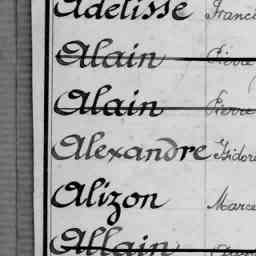 Adelisse Franci
Alain Pierre
Alain Pierre
Alexandre Isidore
Alizon Marce
Allain